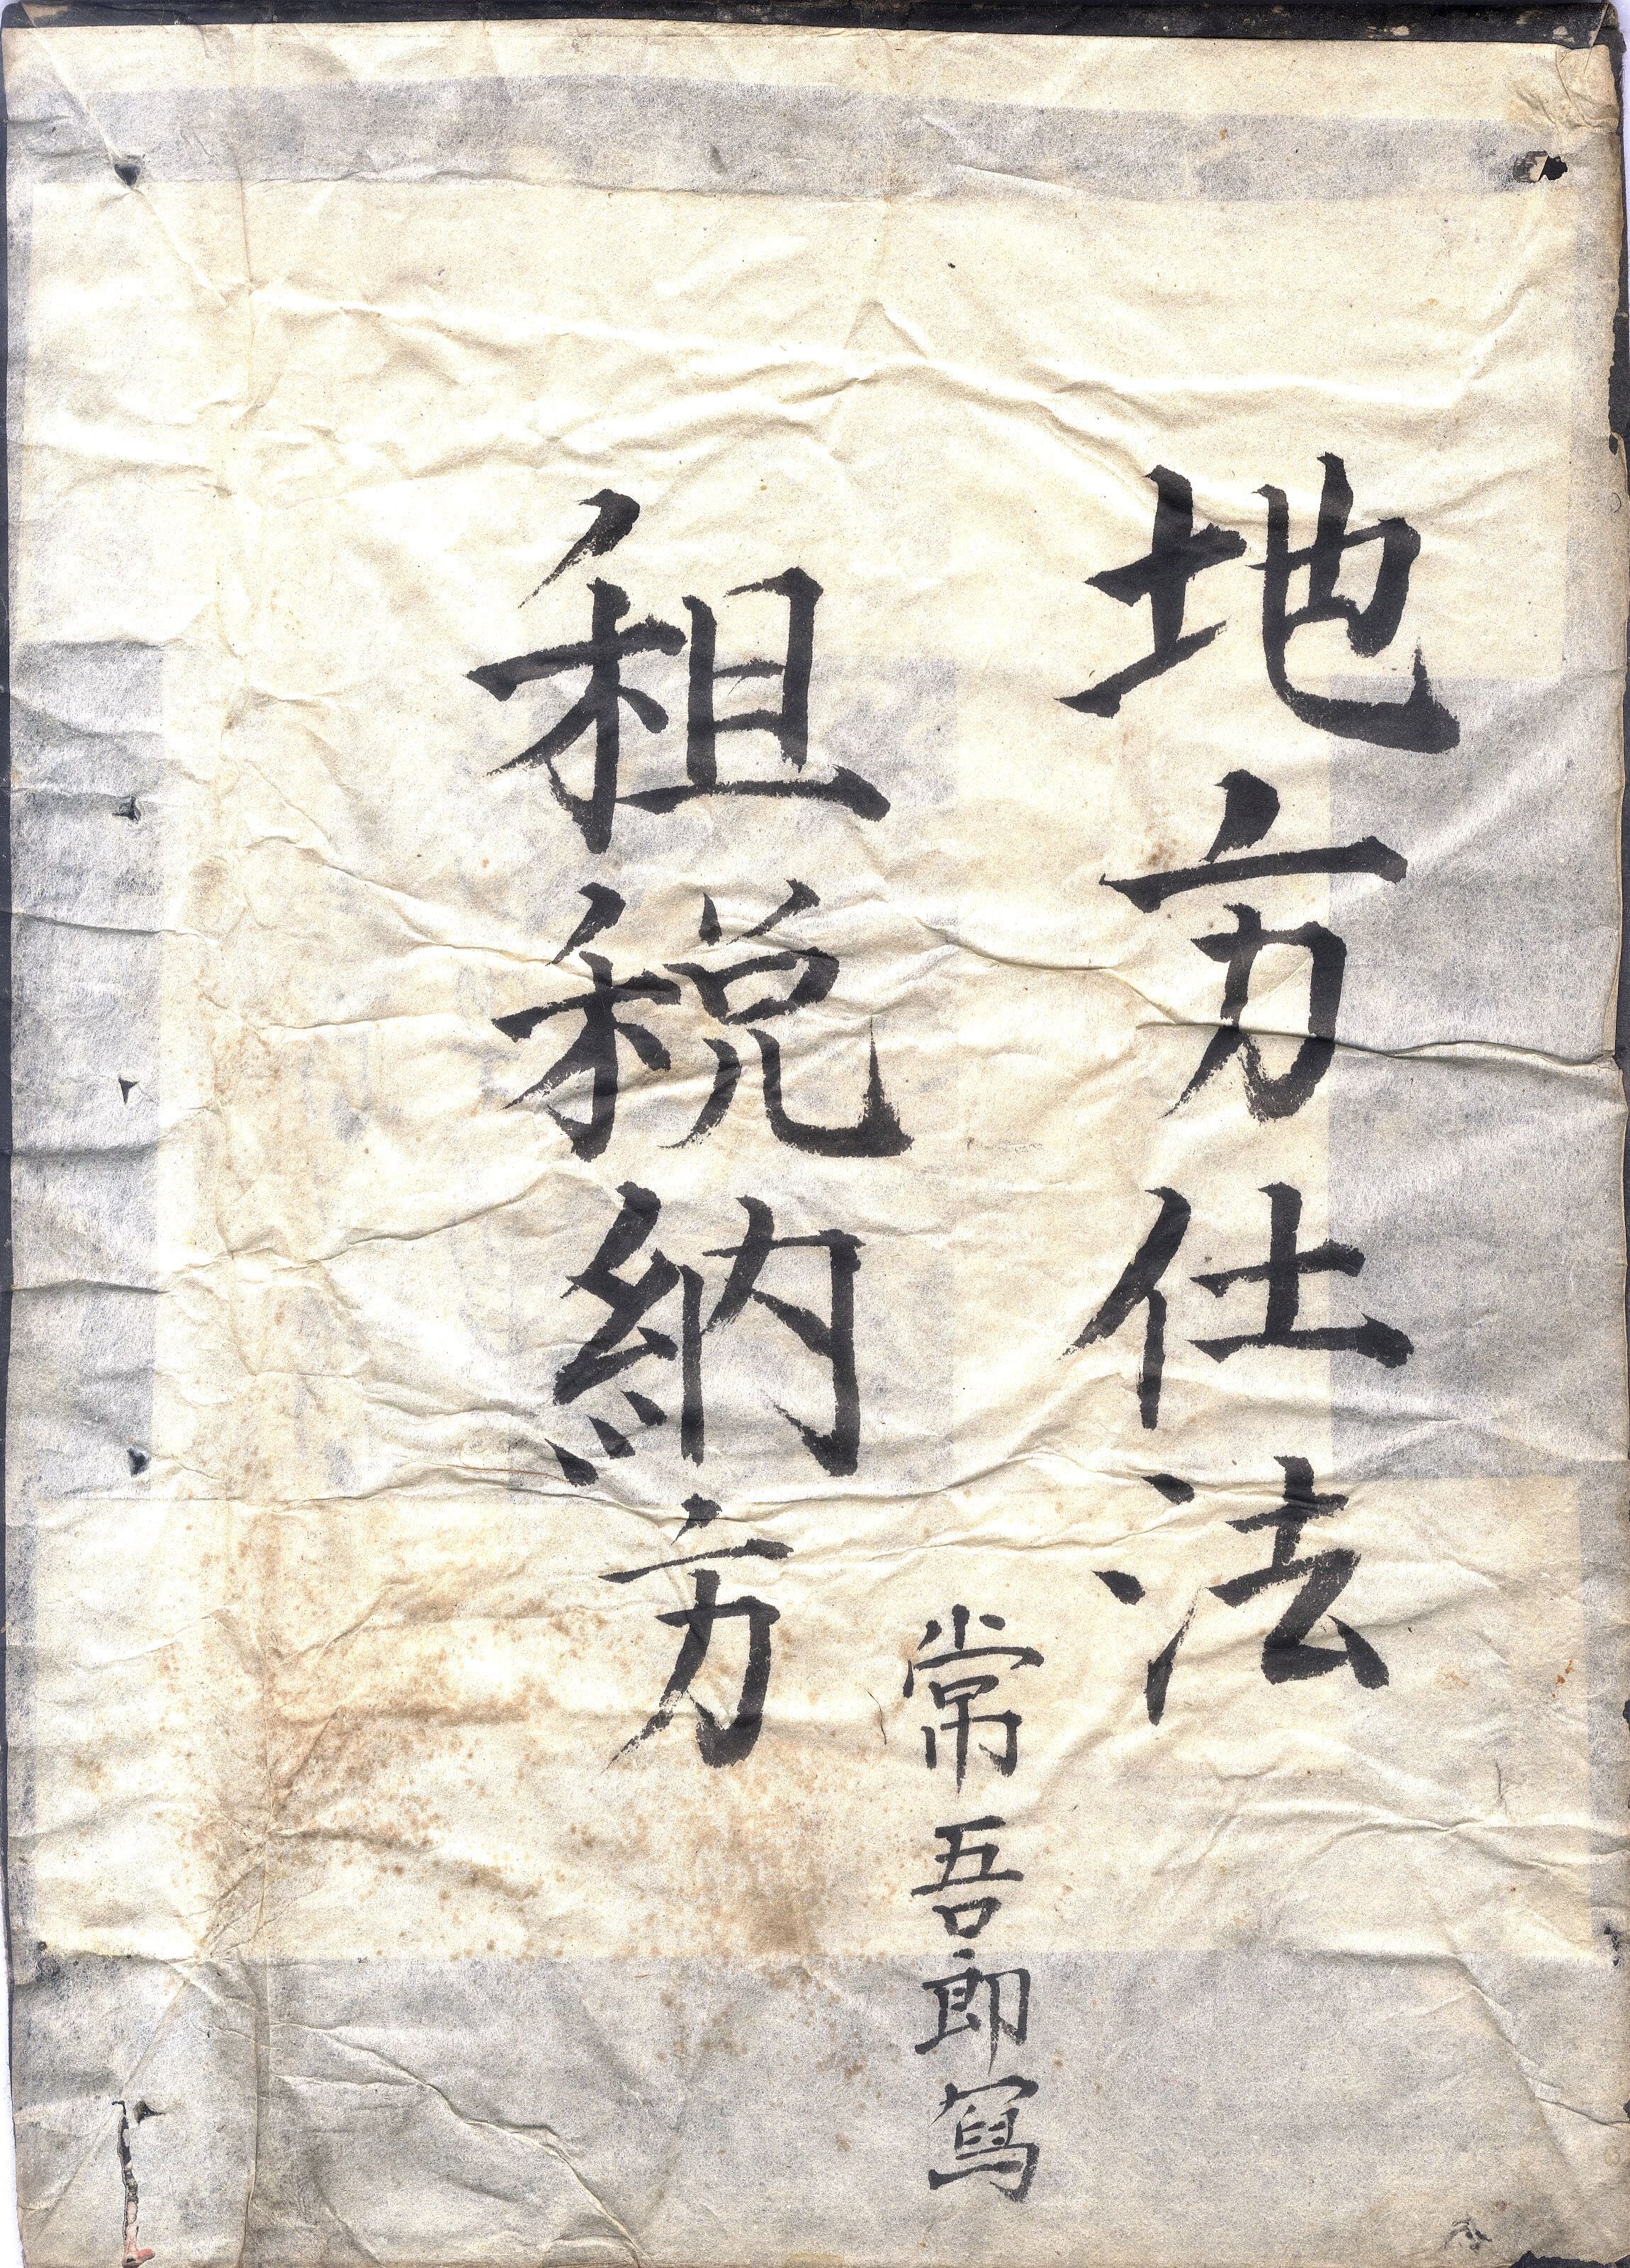 地方仕法
常吾郎寫
租税納方